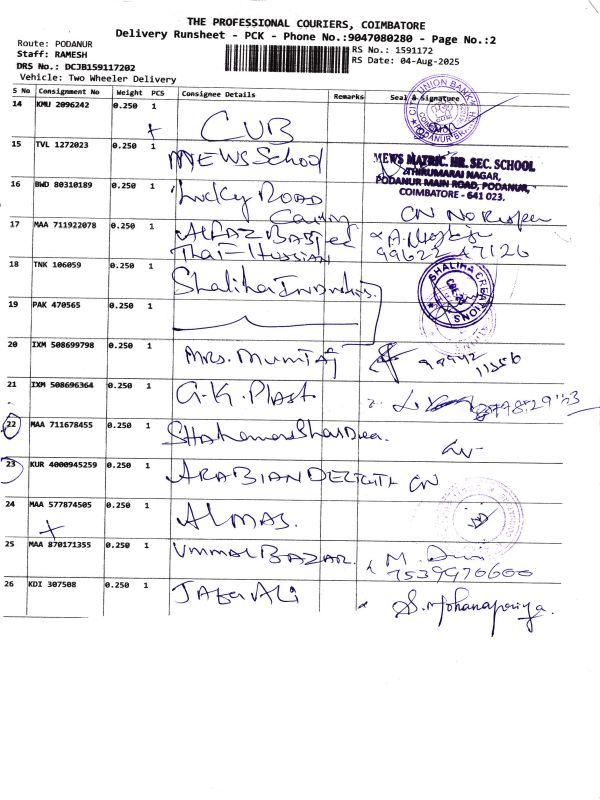 THE PROFESSIONAL COURIERS, COIMBATORE
Delivery Runsheet - PCK - Phone No.:9047080280 - Page No.:2
Route: PODANUR
Staff: RAMESH
DRS No.: DCJB159117202
Vehicle: Two Wheeler Delivery
RS No.: 1591172
RS Date: 04-Aug-2025
S No Consignment No Weight PCS Consignee Details Remarks Seal & Signature
14 KMU 2096242 0.250 1 CUB
UNION BANK
PODANUR
15 TVL 1272023 0.250 1 MEWS School
MEWS MATRIC. HR. SEC. SCHOOL
THIRUMARAI NAGAR,
PODANUR MAIN ROAD, PODANUR,
COIMBATORE - 641 023.
16 BWD 80310189 0.250 1 Lucky ROAD
CN No
17 MAA 711922078 0.250 1
99622 47126
18 TNK 106059 0.250 1 Shaliha
SHALIHA CREATIONS
19 PAK 470565 0.250 1
20 IXM 508699798 0.250 1 MRS. Mumtaj
21 IXM 508696364 0.250 1 G.K. Plast
22 MAA 711678455 0.250 1
23 KUR 4000945259 0.250 1 ARABIAN CN
24 MAA 577874505 0.250 1 ALMAS.
25 MAA 870171355 0.250 1 UMMAL BAZAR.
7539970600
26 KDI 307508 0.250 1 JAFER ALi S. Mohanapriya.